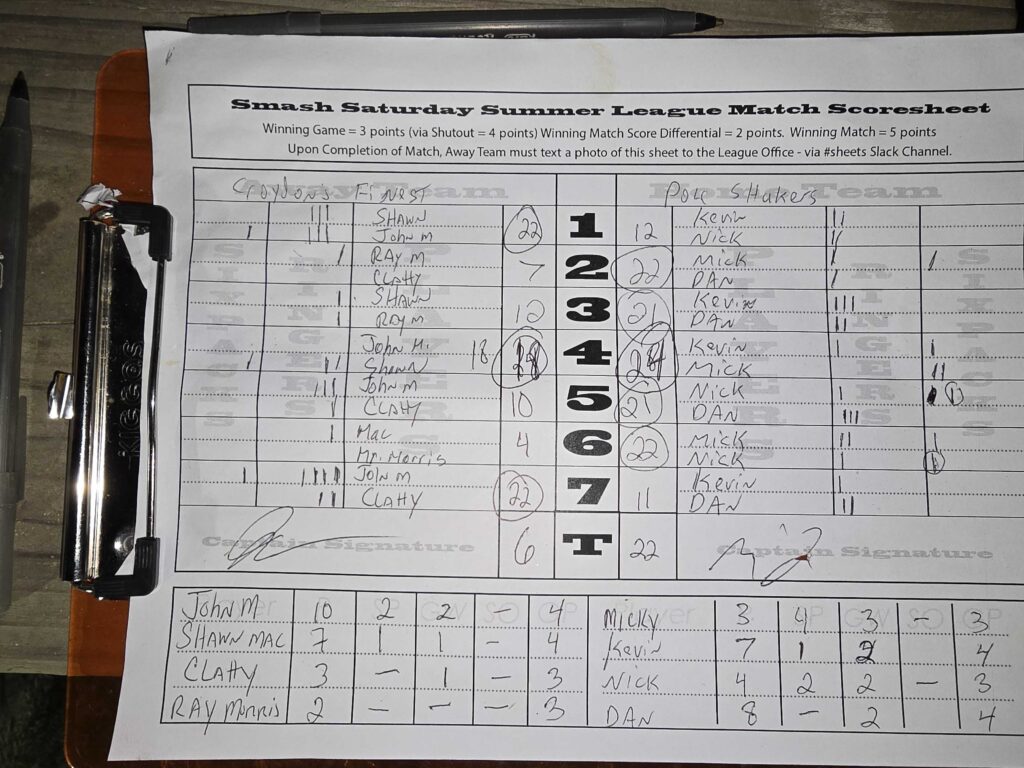 Smash Saturday Summer League Match Scoresheet
Winning Game = 3 points (via Shutout = 4 points) Winning Match Score Differential = 2 points. Winning Match = 5 points
Upon Completion of Match, Away Team must text a photo of this sheet to the League Office - via #sheets Slack Channel.
Croydons Finest Pole Shakers
SHAWN 22 1 12 Kevin
John M Nick
RAY M 7 2 22 Mick
CLATTY DAN
SHAWN 12 3 21 Kevin
RAY M DAN
John M. 18 4 Kevin
Shawn Mick
John M 10 5 21 Nick
CLATTY DAN
Mac 4 6 22 Mick
Mr. Morris Nick
John M 22 7 11 Kevin
CLATTY DAN
Captain Signature 6 T 22 Captain Signature
John M 10 2 2 - 4 Micky 3 4 3 - 3
SHAWN MAC 7 1 1 - 4 Kevin 7 1 2 4
CLATTY 3 - 1 - 3 NICK 4 2 2 - 3
RAY Morris 2 - - - 3 DAN 8 - 2 4